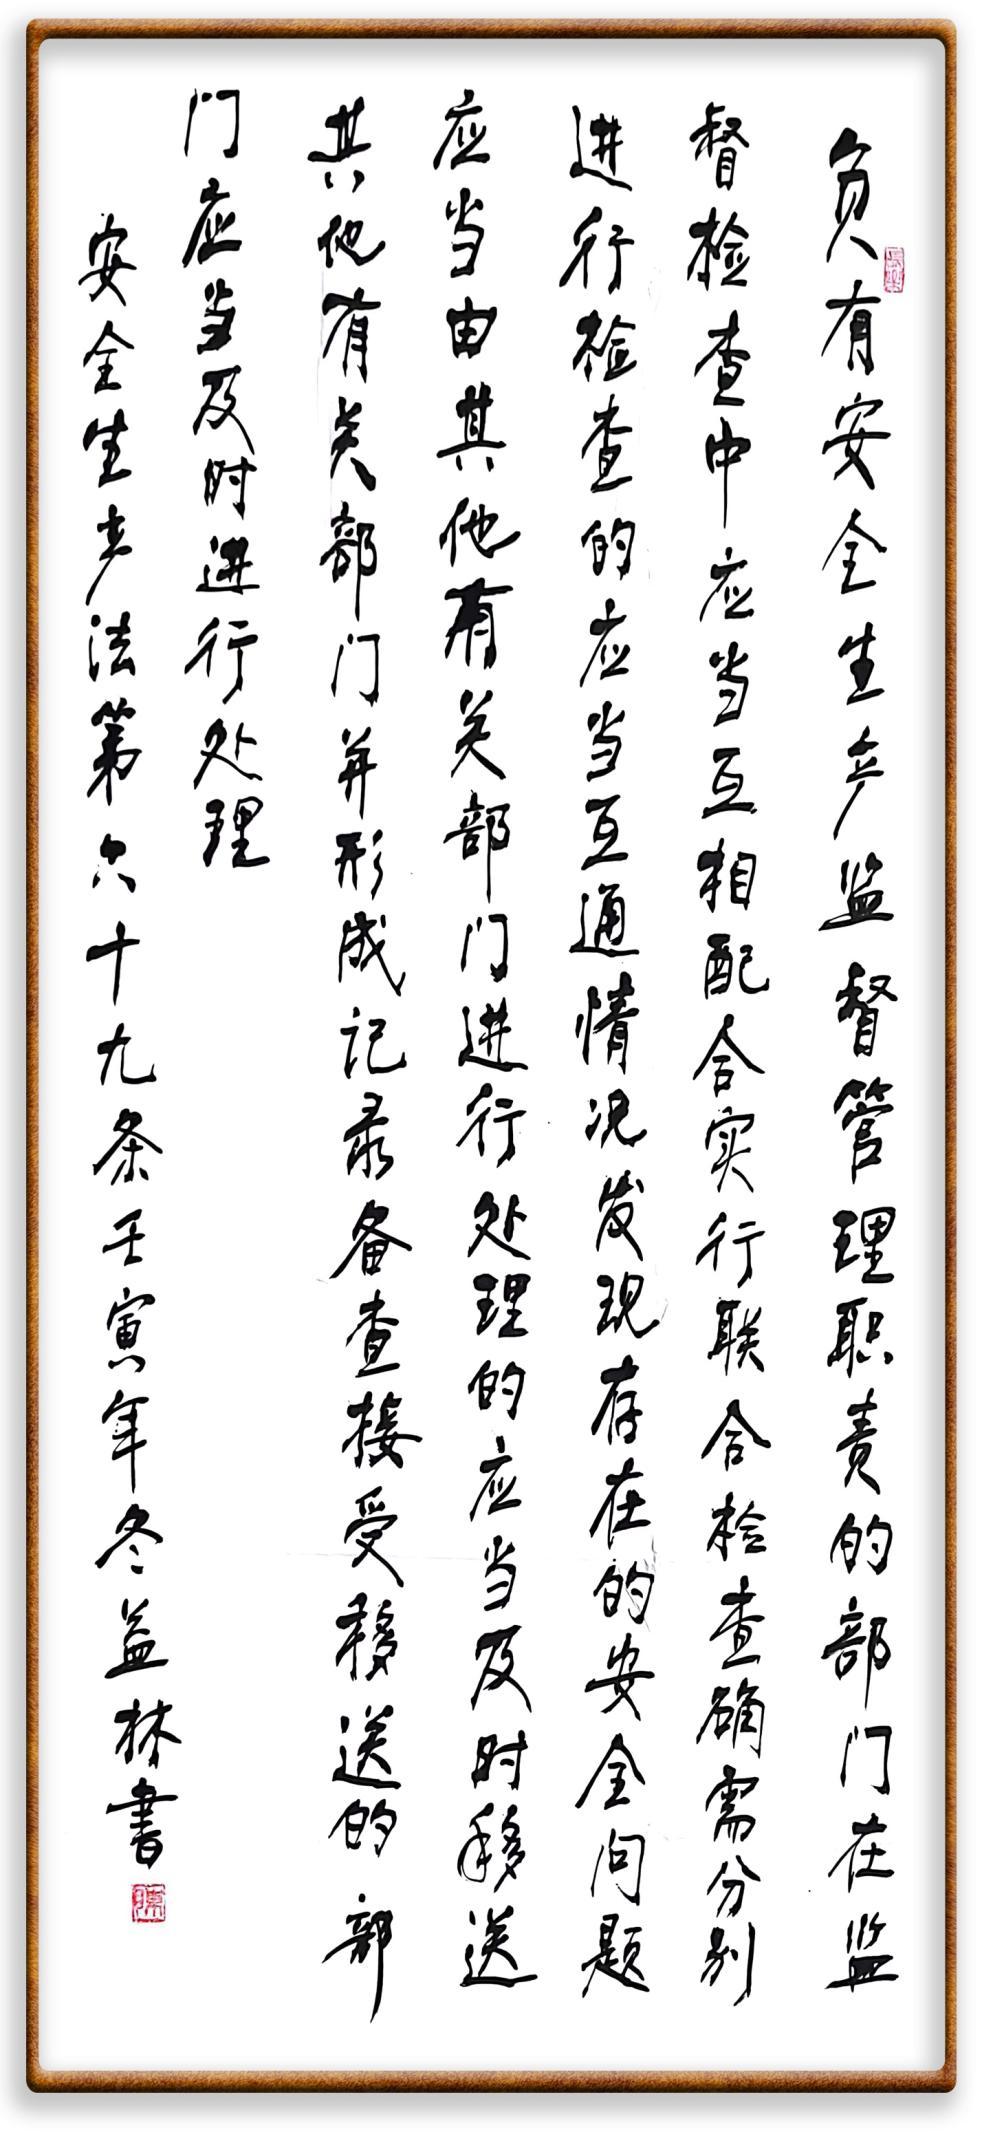 负有安全生产监督管理职责的部门在监
督检查中应当互相配合实行联合检查确需分别
进行检查的应当互通情况发现存在的安全问题
应当由其他有关部门进行处理的应当及时移送
其他有关部门并形成记录备查接受移送的部
门应当及时进行处理
安全生产法第六十九条壬寅年冬益林书